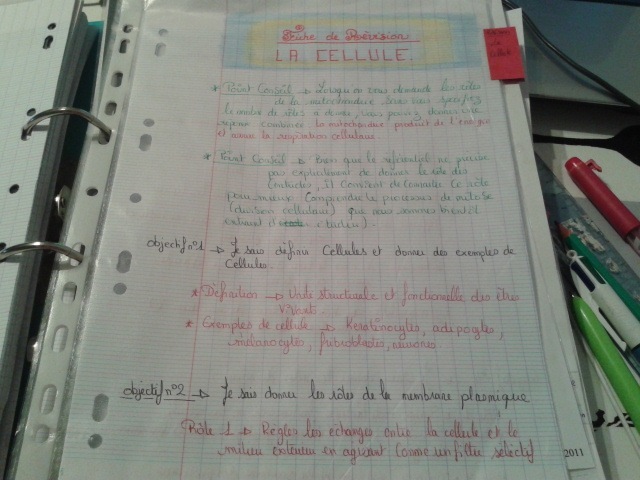 Fiche de Révision
LA CELLULE.
* Point Conseil → Lorsqu'on vous demande les rôles
de la mitochondrie sans vous spécifiez
le nombre de rôles à donner, vous pouvez donner une
réponse combinée la mitochondrie produit de l'énergie
et assure la respiration cellulaire
* Point Conseil → Bien que le référentiel ne précise
pas explicitement de donner le rôle des
Centrioles, il Convient de Connaître Ce rôle
pour mieux Comprendre le processus de mitose
(division cellulaire) que nous sommes bientôt
d'étudier).
objectif n°1 → Je sais définir Cellules et donner des exemples de
Cellules.
* Définition → Unité structurale et fonctionnelle des êtres
Vivants.
* Exemples de cellule → Keratinocytes, adipocytes,
mélanocytes, fibroblastes, neurones
objectif n°2 → Je sais donner les rôles de la membrane plasmique
Rôle 1 → Regler les échanges entre la cellule et le
milieu extérieur en agissant Comme un filtre sélectif
2011